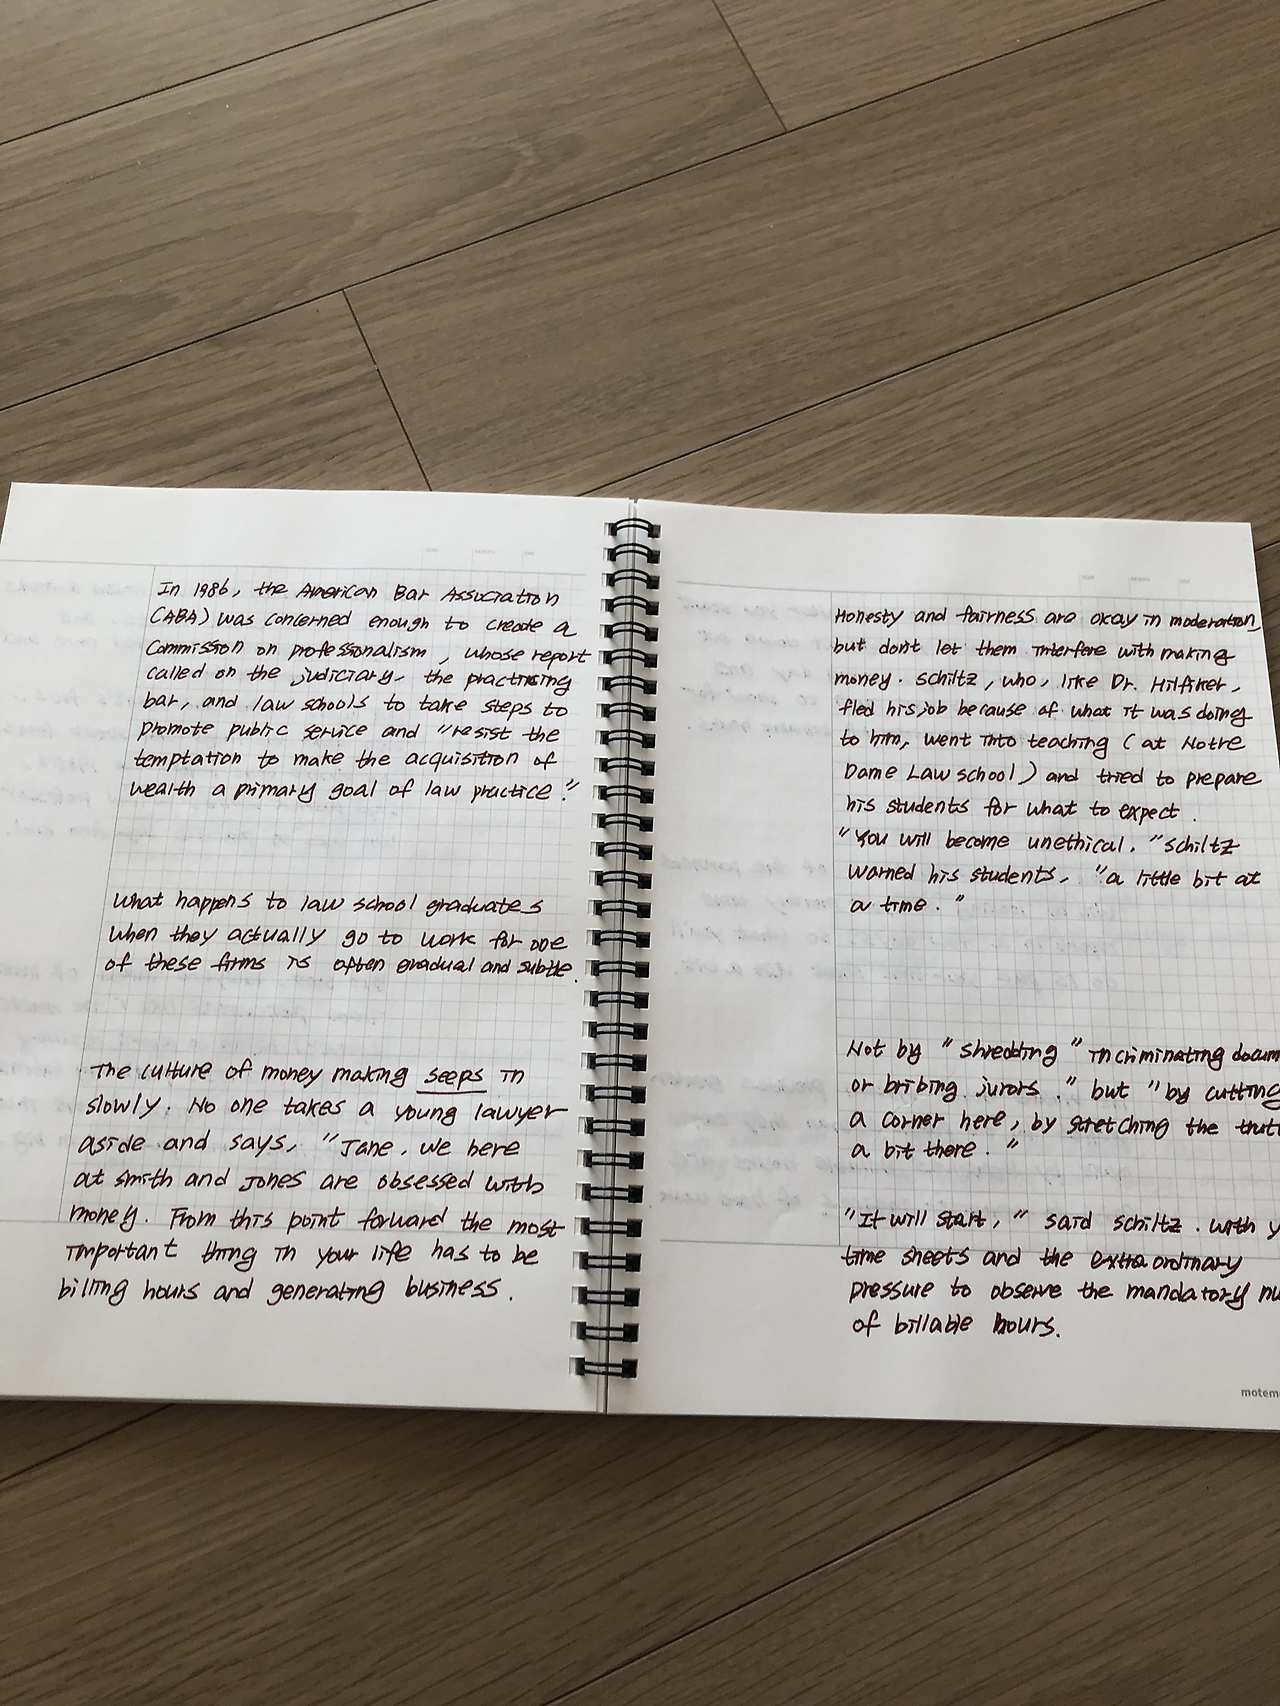 In 1986, the American Bar Association
(ABA) was concerned enough to create a
Commission on professionalism, whose report
called on the judiciary, the practicing
bar, and law schools to take steps to
promote public service and "resist the
temptation to make the acquisition of
wealth a primary goal of law practice."
What happens to law school graduates
when they actually go to work for one
of these firms is often gradual and subtle.
The culture of money making seeps in
slowly. No one takes a young lawyer
aside and says, "Jane, we here
at smith and Jones are obsessed with
money. From this point forward the most
important thing in your life has to be
billing hours and generating business.
Honesty and fairness are okay in moderation,
but don't let them interfere with making
money. Schiltz, who, like Dr. Hilfiker,
fled his job because of what it was doing
to him, went into teaching (at Notre
Dame Law school) and tried to prepare
his students for what to expect.
"You will become unethical. "Schiltz
warned his students, "a little bit at
a time."
Not by "shredding" incriminating docum
or bribing jurors." but "by cutting
a corner here, by stretching the trut
a bit there."
"It will start," said schiltz. with y
time sheets and the extraordinary
pressure to observe the mandatory nu
of billable hours.
motem